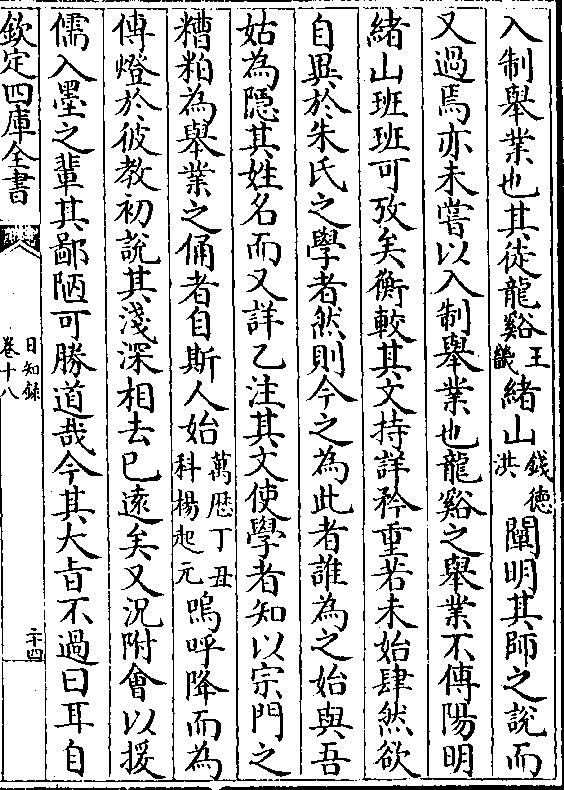 入制舉業也其徒龍谿王畿緒山錢德洪闡明其師之說而
又過焉亦未嘗以入制舉業也龍谿之舉業不傳陽明
緒山班班可攷矣衡較其文持詳矜重若未始肆然欲
自異於朱氏之學者然則今之為此者誰為之始與吾
姑為隱其姓名而又詳乙注其文使學者知以宗門之
糟粕為舉業之俑者自斯人始萬厯丁丑科楊起元嗚呼降而為
傳燈於彼教初說其淺深相去已遠矣又況附會以援
儒入墨之輩其鄙陋可勝道哉今其大㫖不過曰耳自
欽定四庫全書
日知錄
卷十八
二十四